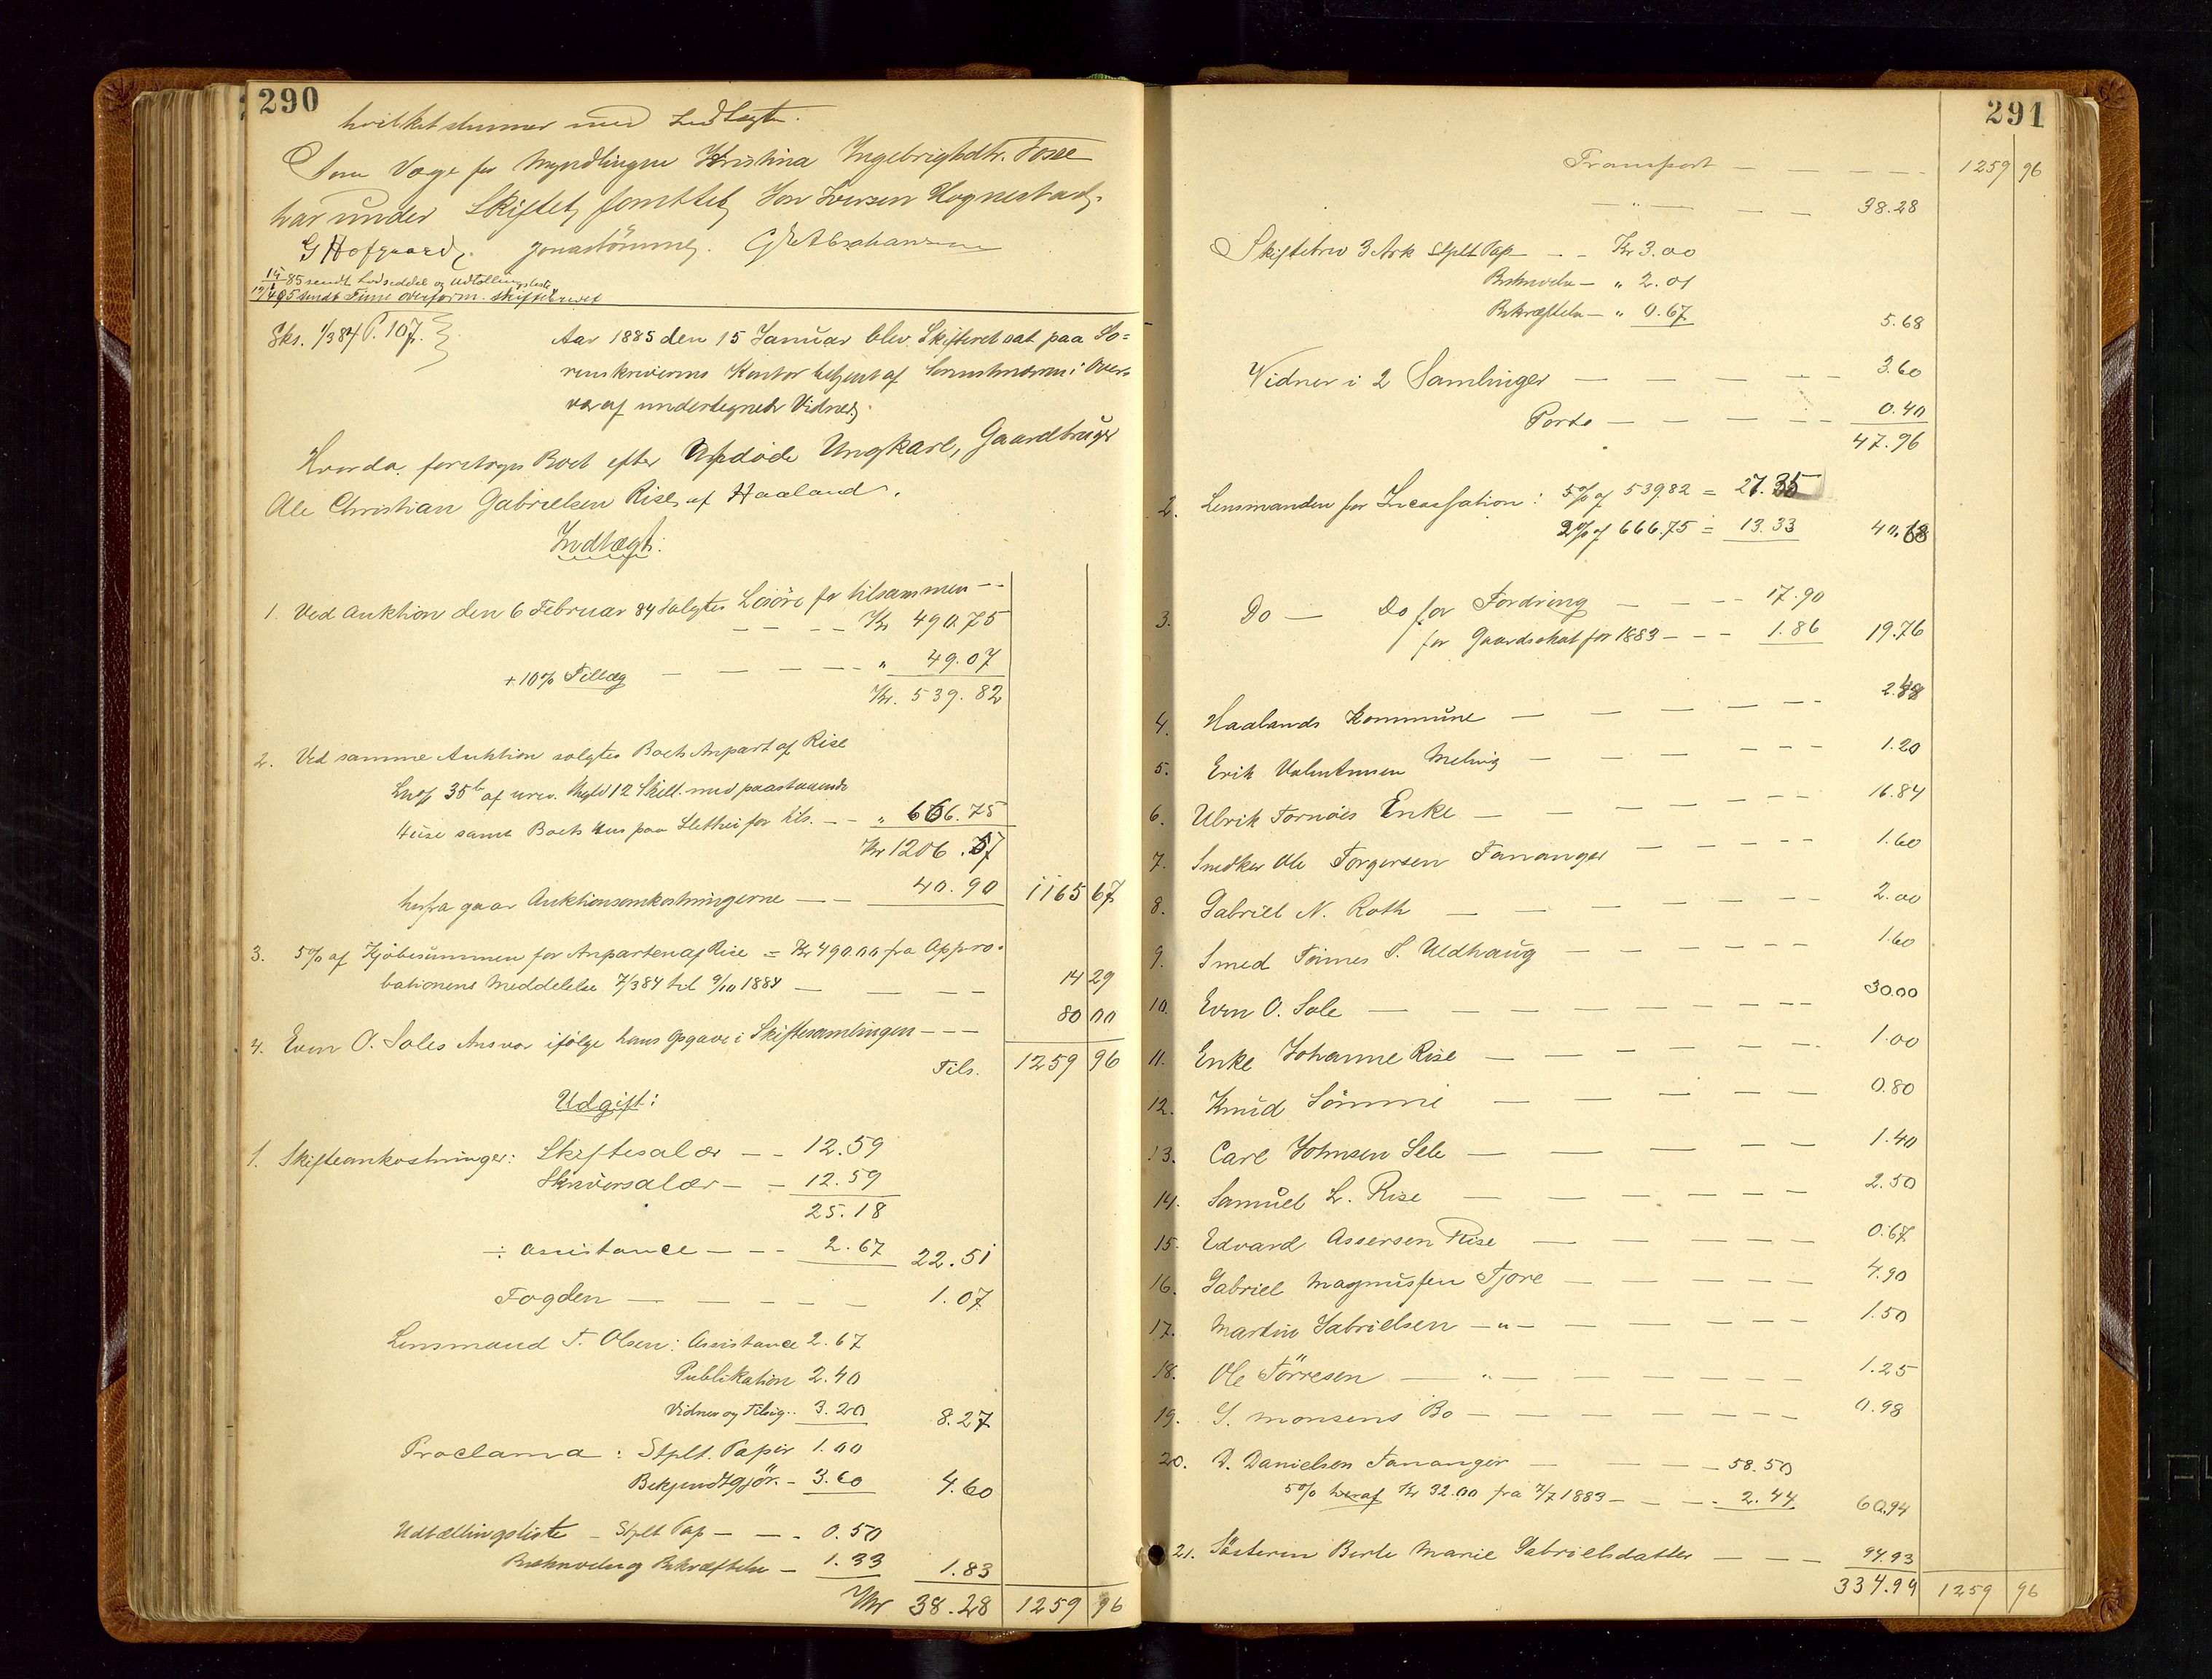 290
hvilket stemmer med Indtægten.
Som Værge for Myndlingen Kristina Ingebrigtsdtr. Fosse
har under Skiftet fomttet Jon Iversen Hognestad.
G Hofgaard. Jonas Sømme. G E Abrahamsen
15/1 85 sendt Lodseddel og Udtællingsliste
sendt Time overform. skiftebrevet
Sks. 1/3 84 P. 107.
Aar 1885 den 15 Januar blev Skifteret sat paa So=
renskriverens Kontor betjent af Sorenskriveren i Over=
vær af undertegnede Vidner.
Hvorda foretoges Boet efter Afdøde Ungkarl, Gaardbruger
Ole Christian Gabrielsen Rise af Haaland.
Indtægt:
1. Ved Auktion den 6 Februar 84 solgtes Løsøre for tilsammen --
— — — — Kr 490.75
+ 10% Tillæg — — — — „ 49.07
Kr. 539.82
2. Ved samme Auktion solgtes Boets Anpart af Rise
Lno 35 b af urev. Skyld 12 Skill. med paastaaende
Huse samt Boets Hus paa Slethei for tils. — — „ 666.75
Kr 1206.57
herfra gaar Auktionsomkostningerne — — 40.90 1165 67
3. 5% af Kjøbesummen for Anparten af Rise = Kr 490.00 fra Appro=
bationens Meddelelse 7/3 84 til 9/10 1884 — — — — 14 29
4. Even O. Soles Ansvar ifølge hans Opgave i Skiftesamlingen — — — 80 00
Tils. 1259 96
Udgift:
1. Skifteomkostninger: Skiftesalær — — 12.59
Skriversalær — — 12.59
25.18
÷ Assistance — — — 2.67 22.51
Fogden — — — — — 1.07
Lensmand T. Olsen: Assistance 2.67
Publikation 2.40
Vidner og Tilsig.. 3.20 8.27
Proclama: Stplt. Papir 1.00
Bekjendtgjör. – 3.60 4.60
Udtællingsliste – Stplt Pap — — – 0.50
Beskrivelse og Bekræftelse — 1.33 1.83
Kr 38.28 1259 96
291
Transport — — — — — 1259 96
— „ — — — 38.28
Skiftebrev 3 Ark Stplt Pap — – – Kr 3.00
Beskrivelse — „ 2.01
Bekræftelse — „ 0.67 5.68
Vidner i 2 Samlinger — — — — — 3.60
Porto — — — — — 0.40
47.96
2. Lensmanden for Incassation: 5% af 539.82 = 27.35
2% af 666.75 = 13.33 40.68
3. Do — Do for Fordring — — — — 17.90
for Gaardskat for 1883 — — — 1.86 19.76
4. Haalands Kommune — — — — — 2.48
5. Erik Valentinsen Meling — — — — — 1.20
6. Ulrik Tornøes Enke — — — — — 16.84
7. Snedker Ole Torgersen Tananger — — — — — 1.60
8. Gabriel N. Roth — — — — — 2.00
9. Smed Tönnes S. Uldhaug — — — — — 1.60
10. Even O. Sole — — — — — 30.00
11. Enke Johanne Rise — — — — — 1.00
12. Knud Sømme — — — — — 0.80
13. Carl Johnsen Sele — — — — 1.40
14. Samuel L. Rise — — — — — 2.50
15. Edvard Assersen Rise — — — — 0.67
16. Gabriel Magnussen Tjore — — — — — 4.90
17. Martin Gabrielsen — „ — — — — — — 1.50
18. Ole Törresen — „ — — — — — 1.25
19. S. Monsens Bo — — — — — 0.98
20. D. Danielsen Tananger — — — — 58.50
5% heraf Kr 32.00 fra 2/7 1883 — — — 2.44 60.94
21. Søsteren Berte Marie Gabrielsdatter — — — 94.93
334.99 1259 96